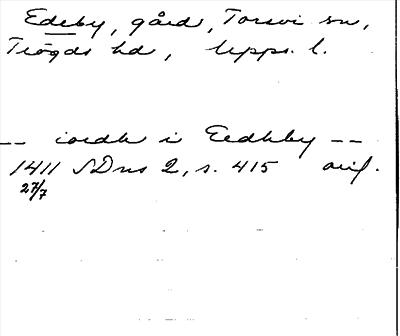 Edeby, gård, Torsvi sn,
Trögds hd, Upps. l.
-- iordh i Eedhby --
1411 SDns 2, s. 415 avf.
27/7